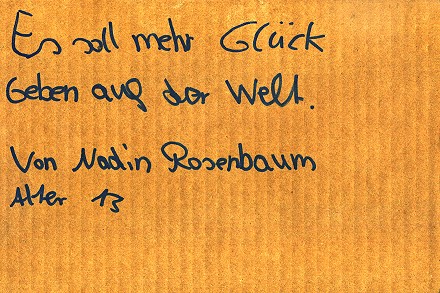 Es soll mehr Glück
Geben auf der Welt.
Von Nadin Rosenbaum
Alter 13